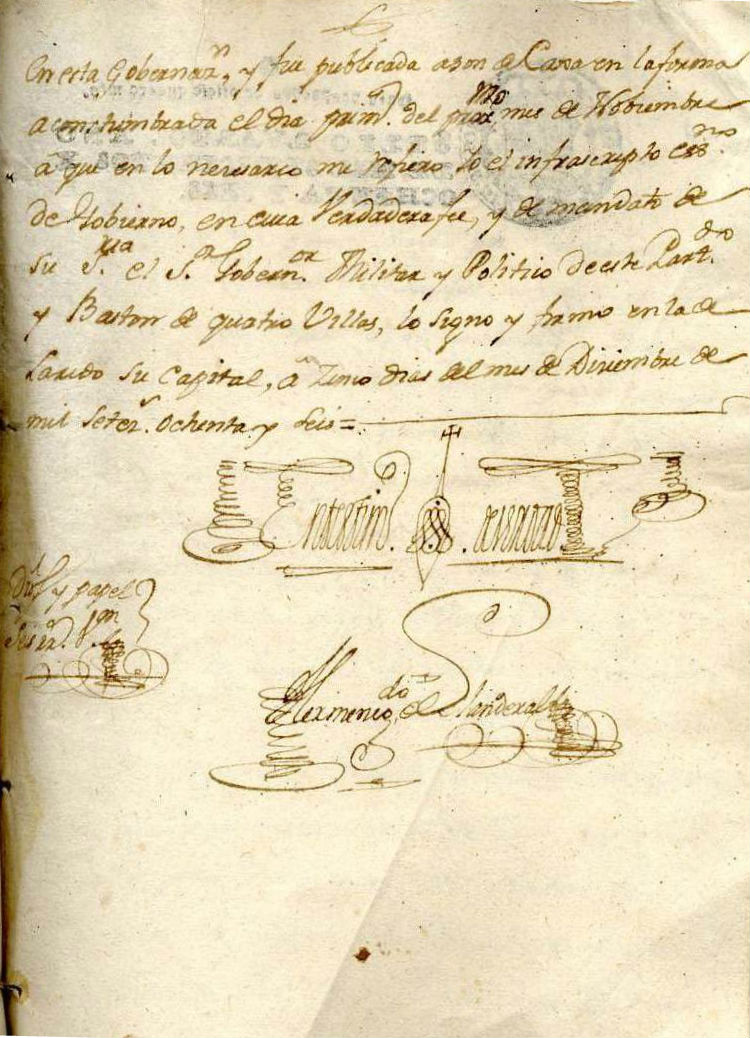 En esta Gobernazn, y fue publicada a son de Caxa en la forma
acosthumbrada el dia primo. del proxmo mes de Nobiembre
â que en lo nezesario me refiero Io el infrascripto essno.
de Gobierno, en cuia Verdadera fee, y de mandato de
su S.ria el S.or Gobern.or Militar y Politico de este Part.do
y Baston de quatro Villas, lo signo y firmo en la de
Laredo su Capital, â zinco dias del mes de Diziembre de
mil setezs. ochenta y seis =
En testimo. de verdad
Dros. y papel
seis rrs.
Hermenedo de